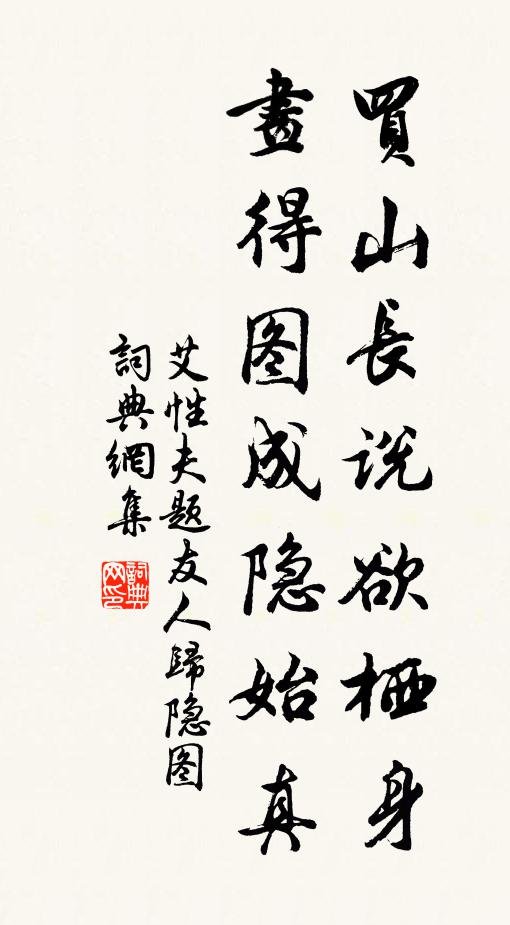 買山長说欲栖身
畫得图成隐始真
艾性夫题友人歸隐图
詞典網集
詞典网印